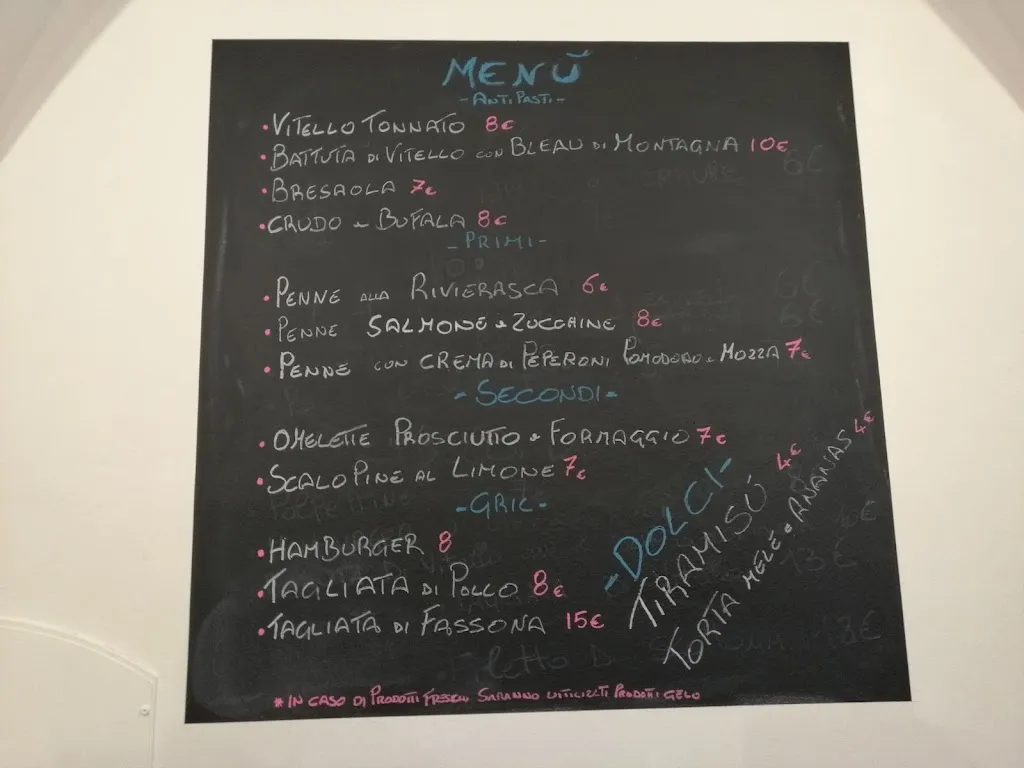 MENÙ
- ANTIPASTI -
• VITELLO TONNATO 8€
• BATTUTA DI VITELLO CON BLEAU DI MONTAGNA 10€
• BRESAOLA 7€
• CRUDO e BUFALA 8€
- PRIMI -
• PENNE ALLA RIVIERASCA 6€
• PENNE SALMONE e ZUCCHINE 8€
• PENNE CON CREMA DI PEPERONI POMODORO e MOZZA 7€
- SECONDI -
• OMELETTE PROSCIUTTO e FORMAGGIO 7€
• SCALOPINE AL LIMONE 7€
- GRIL -
• HAMBURGER 8
• TAGLIATA DI POLLO 8€
• TAGLIATA DI FASSONA 15€
- DOLCI -
TIRAMISÙ 4€
TORTA MELE e ANANAS 4€
* IN CASO DI PRODOTTI FRESCHI SARANNO UTILIZATI PRODOTTI GELO